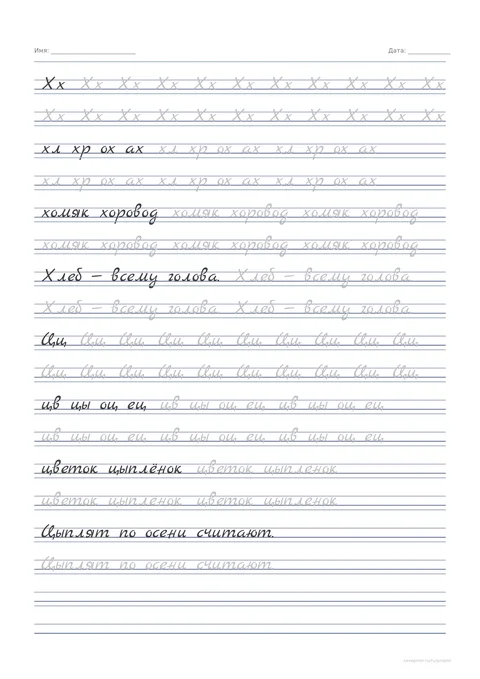 Имя: Дата:
Хх Хх Хх Хх Хх Хх Хх Хх Хх Хх Хх
Хх Хх Хх Хх Хх Хх Хх Хх Хх Хх Хх
хл хр ох ах хл хр ох ах хл хр ох ах
хл хр ох ах хл хр ох ах хл хр ох ах
хомяк хоровод хомяк хоровод хомяк хоровод
хомяк хоровод хомяк хоровод хомяк хоровод
Хлеб – всему голова. Хлеб – всему голова
Хлеб – всему голова Хлеб – всему голова
Цц Цц Цц Цц Цц Цц Цц Цц Цц Цц
Цц Цц Цц Цц Цц Цц Цц Цц Цц Цц
цв цы оц ец цв цы оц ец цв цы оц ец
цв цы оц ец цв цы оц ец цв цы оц ец
цветок цыплёнок цветок цыпленок
цветок цыпленок цветок цыпленок
Цыплят по осени считают.
Цыплят по осени считают